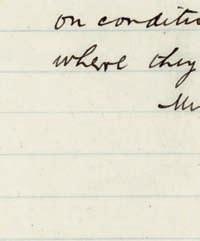 on conditi
where they
M